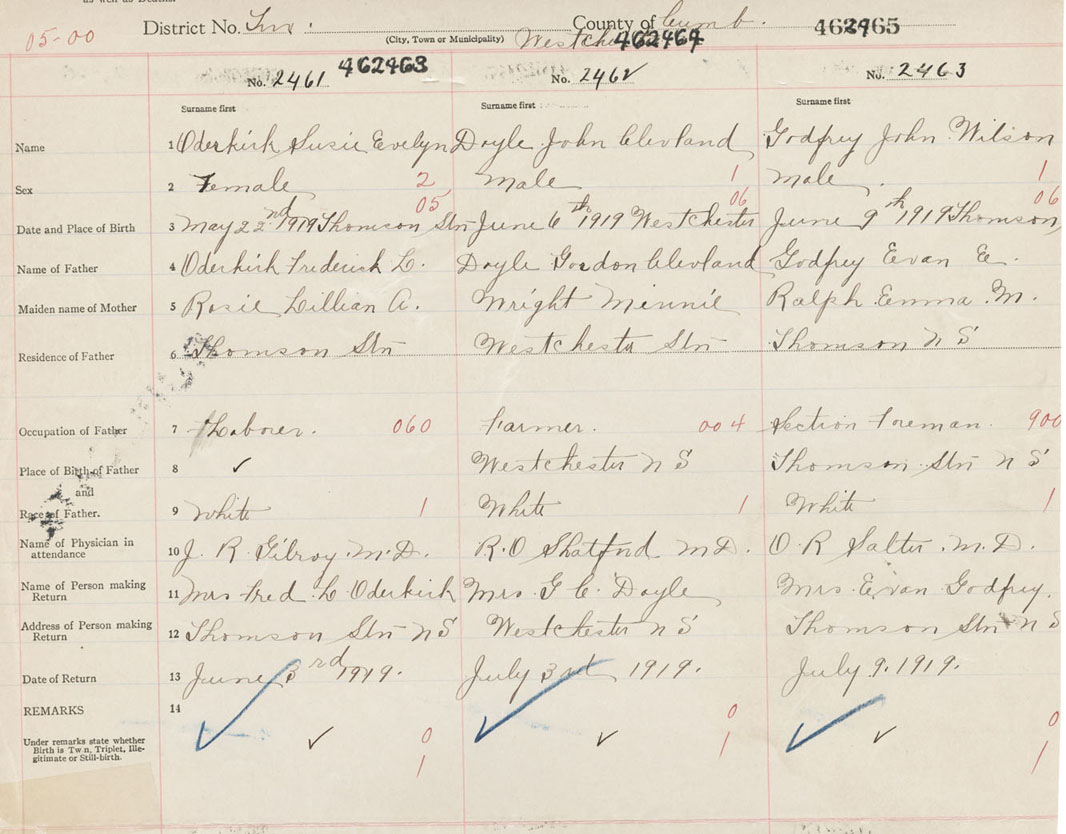 as well as Deaths.
District No. County of Cumb.
(City, Town or Municipality)
05-00 462464 462465
No. 2461 462463 No. 2462 No. 2463
Surname first Surname first Surname first
Name 1 Oderkirk Susie Evelyn Doyle John Clevland Godfrey John Wilson
Sex 2 Female 2 Male 1 Male 1
05 06 06
Date and Place of Birth 3 May 22nd 1919 Thomson Stn June 6th 1919 Westchester June 9th 1919 Thomson
Name of Father 4 Oderkirk Frederick L. Doyle Gordon Clevland Godfrey Evan E.
Maiden name of Mother 5 Rosie Lillian A. Wright Minnie Ralph Emma M.
Residence of Father 6 Thomson Stn Westchester Stn Thomson N S
Occupation of Father 7 Laborer. 060 Farmer. 004 Section Foreman. 900
Place of Birth of Father 8 ✓ Westchester N S Thomson Stn N S
and
Race of Father. 9 White 1 White 1 White 1
Name of Physician in attendance 10 J. R. Gilroy M.D. R. O Shatford M D. O R Salter. M. D.
Name of Person making Return 11 Mrs Fred. L. Oderkirk Mrs. G C. Doyle Mrs. Evan Godfrey.
Address of Person making Return 12 Thomson Stn N S Westchester N S Thomson Stn N S
Date of Return 13 June 3rd 1919. July 31st 1919. July 9. 1919.
REMARKS 14
Under remarks state whether
Birth is Twin, Triplet, Ille-
gitimate or Still-birth.
✓ ✓ 0 ✓ ✓ 0 ✓ ✓ 0
1 1 1